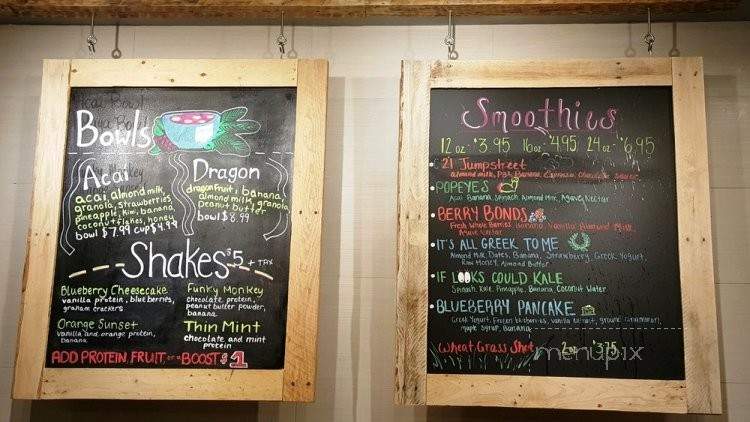 Bowls
Acai
acai, almond milk,
granola, strawberries
pineapple, kiwi, banana,
coconut flakes, honey
bowl $7.99 cup $4.99
Dragon
dragonfruit, banana,
almond milk, granola,
peanut butter
bowl $8.99
Shakes $5 + TAX
Blueberry Cheesecake
vanilla protein, blueberries,
graham crackers
Funky Monkey
chocolate protein,
peanut butter powder,
banana
Orange Sunset
vanilla and orange protein,
banana
Thin Mint
chocolate and mint
protein
ADD PROTEIN, FRUIT, or a BOOST $1
Smoothies
12 oz - $3.95 16 oz - $4.95 24 oz - $6.95
21 Jumpstreet
almond milk, PB2, Banana, Espresso, Chocolate Sauce
POPEYES
Acai, Banana, Spinach, Almond Milk, Agave Nectar
BERRY BONDS
Fresh Whole Berries, Banana, Vanilla Almond Milk,
Agave Nectar
IT'S ALL GREEK TO ME
Almond Milk, Dates, Banana, Strawberry, Greek Yogurt,
Raw Honey, Almond Butter
IF LOOKS COULD KALE
Spinach, Kale, Pineapple, Banana, Coconut Water
BLUEBERRY PANCAKE
Greek Yogurt, Frozen blueberries, vanilla extract, ground cinnamon,
maple syrup, Banana
Wheat Grass Shot 2oz $3.75
menupix